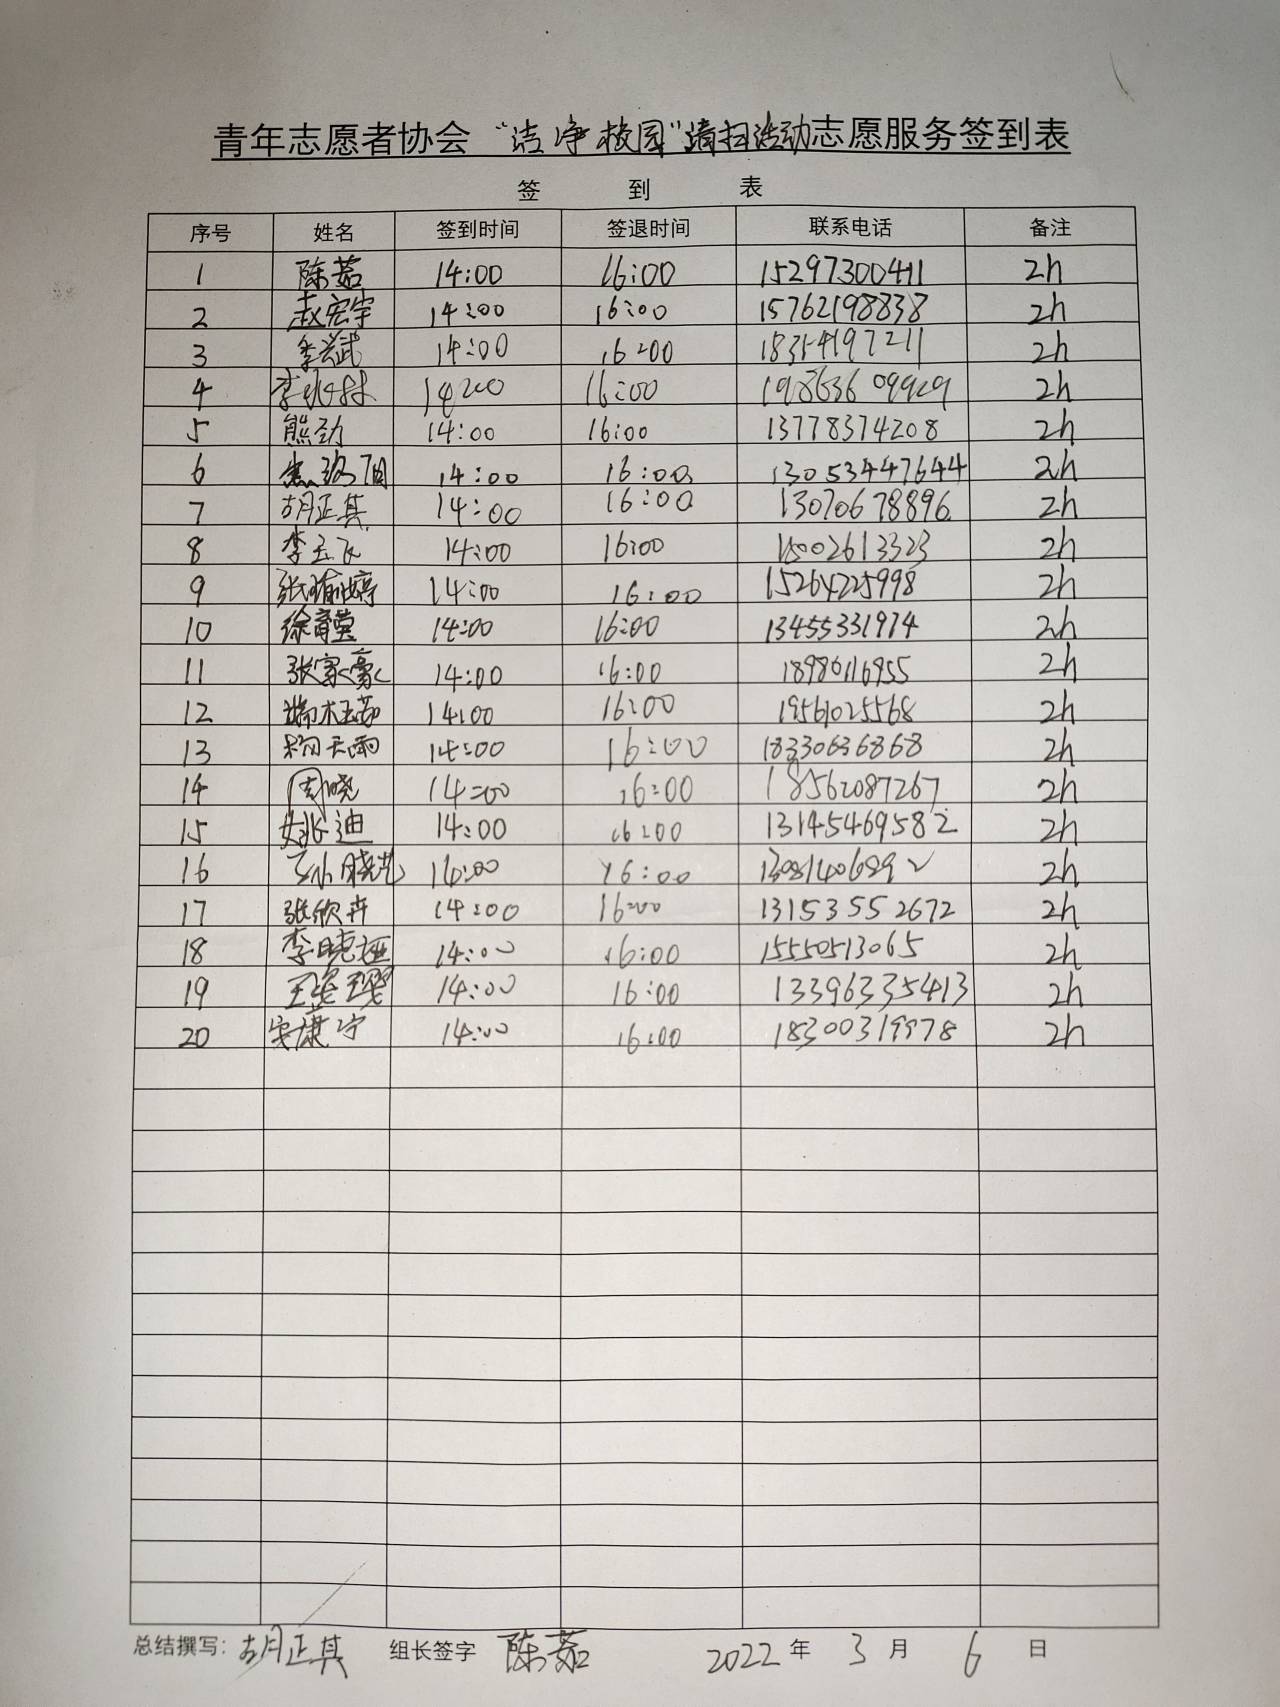 青年志愿者协会 "洁净校园"清扫活动志愿服务签到表
签 到 表
序号 姓名 签到时间 签退时间 联系电话 备注
1 陈茹 14:00 16:00 15297300411 2h
2 赵宏宇 14:00 16:00 15762198838 2h
3 李兴武 14:00 16:00 18354197211 2h
4 14:00 16:00 19863609929 2h
5 熊劲 14:00 16:00 13778374208 2h
6 14:00 16:00 13053447644 2h
7 胡正其 14:00 16:00 13070678896 2h
8 李玉飞 14:00 16:00 15002613323 2h
9 张瑜婷 14:00 16:00 15264225998 2h
10 徐育莹 14:00 16:00 13455331974 2h
11 张家豪 14:00 16:00 18980116955 2h
12 端木玉茹 14:00 16:00 19561025568 2h
13 杨天雨 14:00 16:00 18330636868 2h
14 周晓 14:00 16:00 18562087267 2h
15 姚迪 14:00 16:00 13145469582 2h
16 孙晓艺 14:00 16:00 2h
17 张欣卉 14:00 16:00 13153552672 2h
18 李晓娅 14:00 16:00 15550513065 2h
19 14:00 16:00 13396335413 2h
20 宋康宁 14:00 16:00 18300319978 2h
总结撰写: 胡正其 组长签字 陈茹 2022 年 3 月 6 日